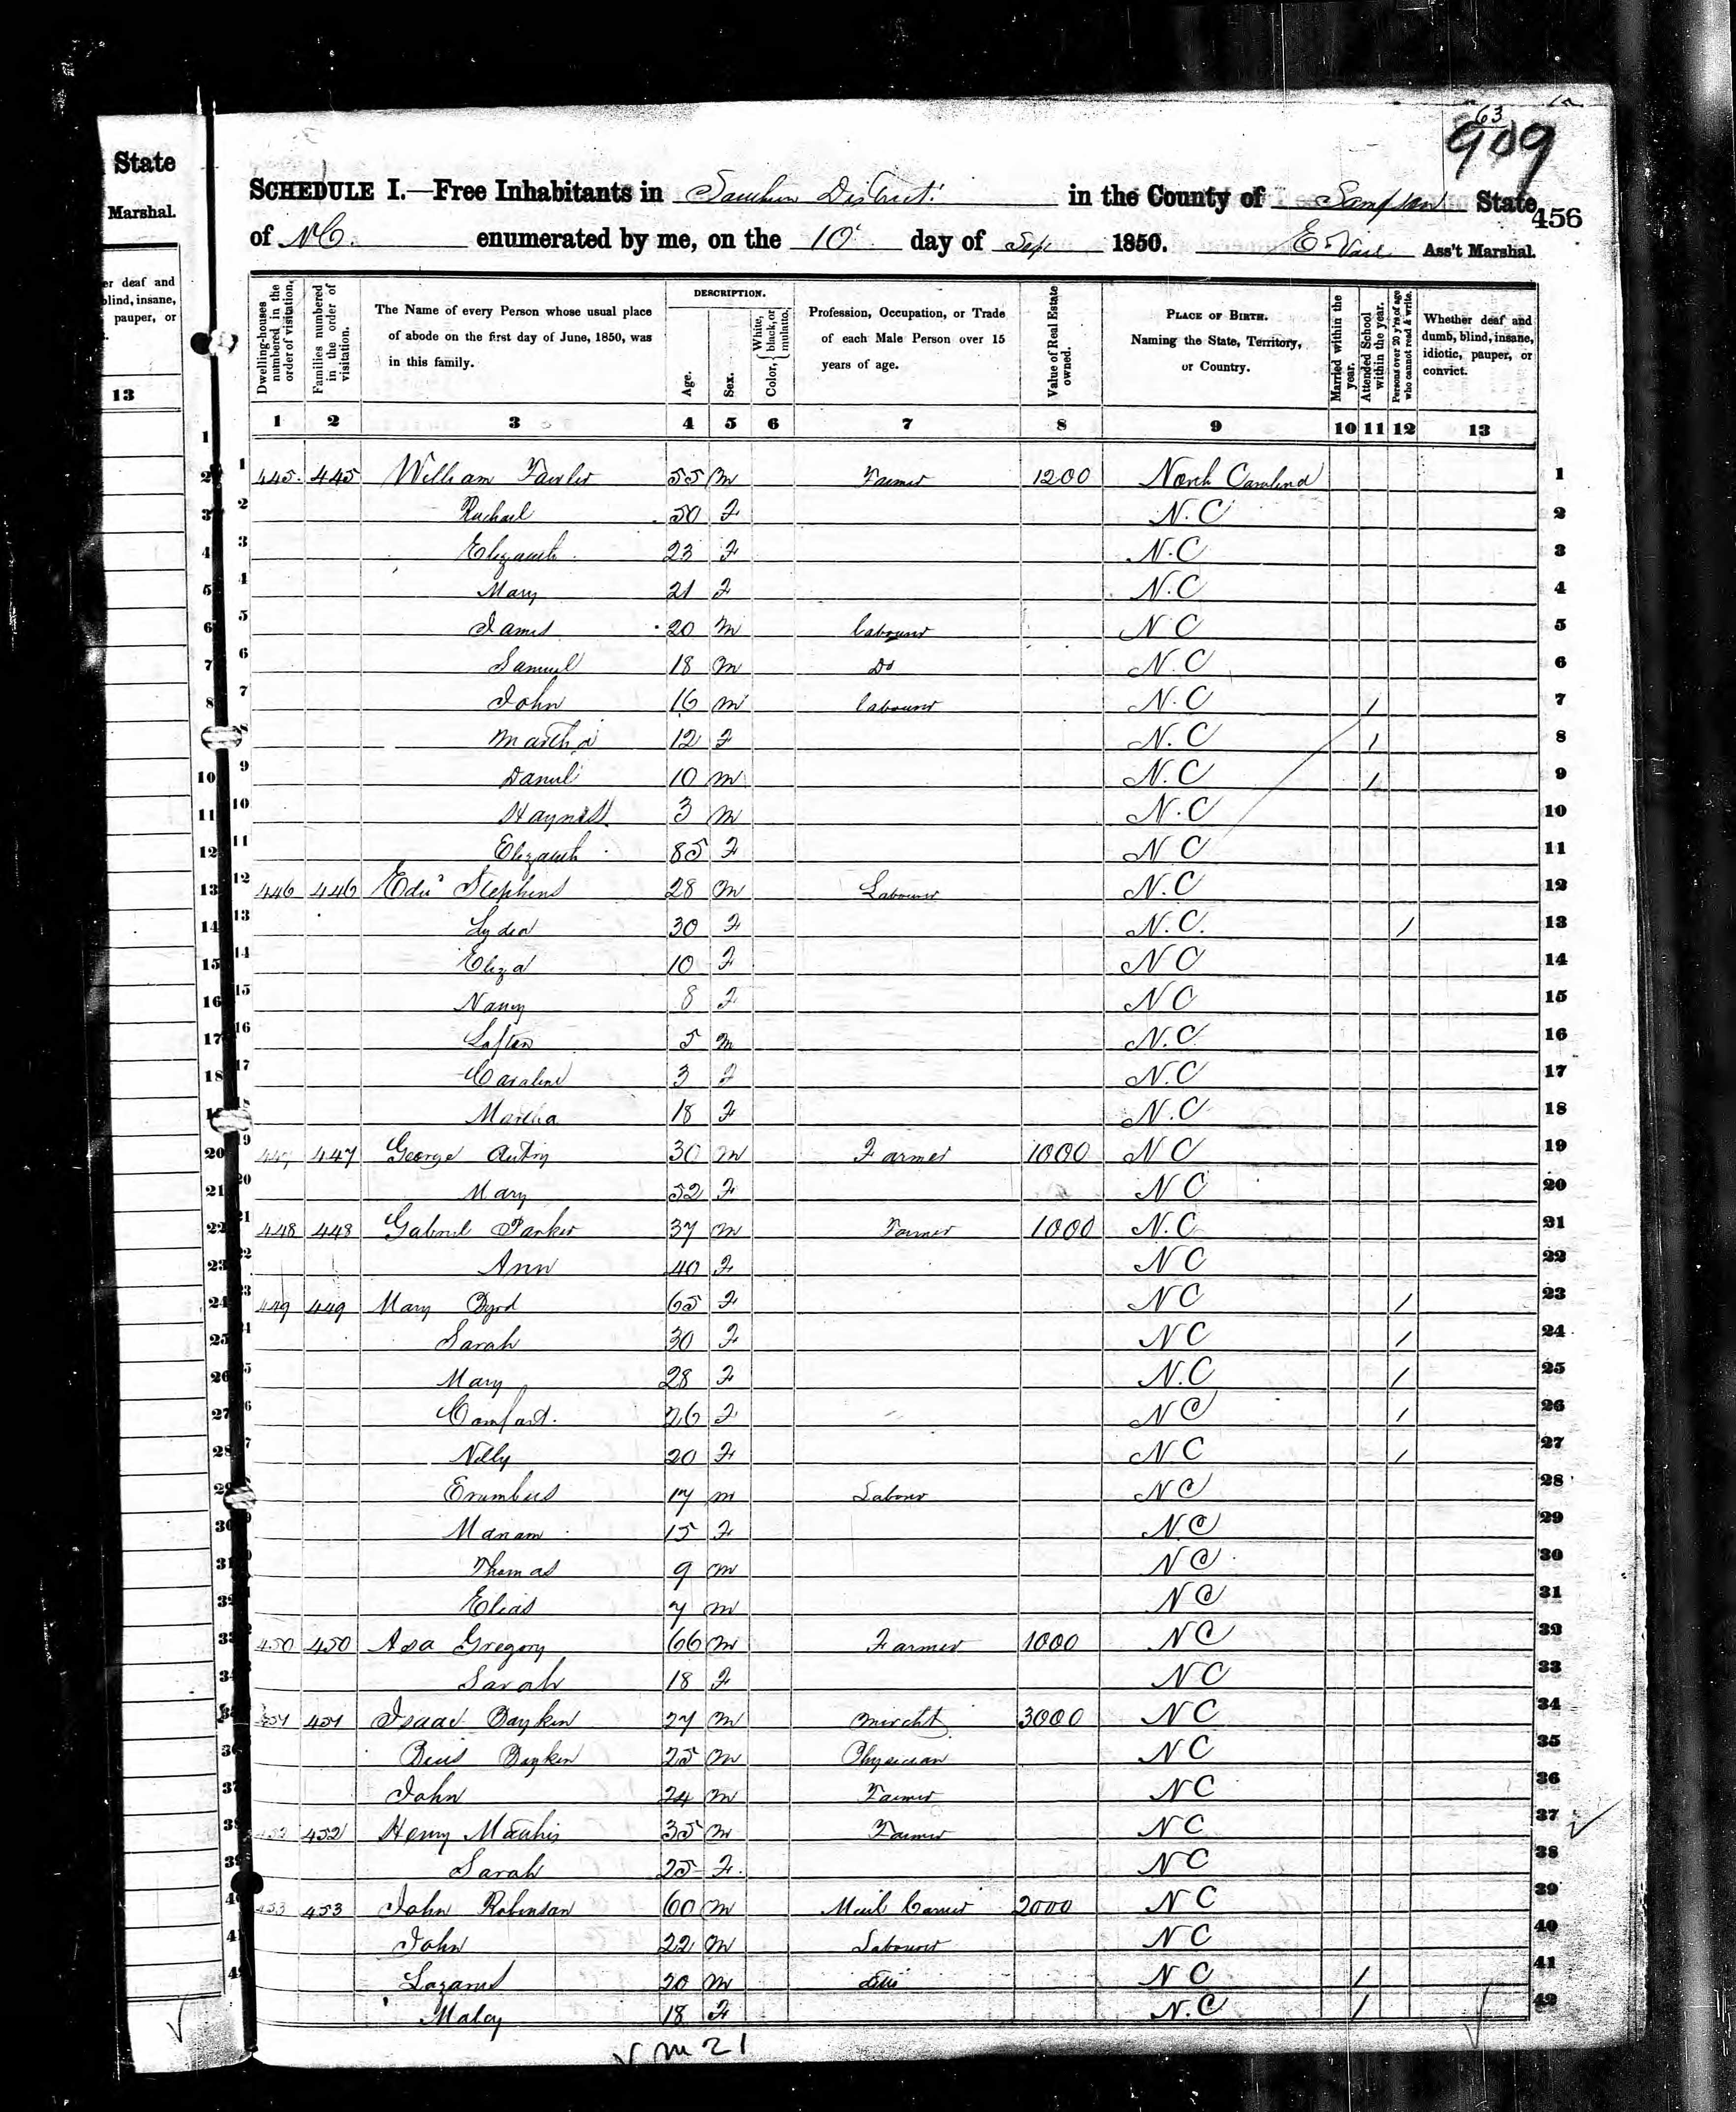 63
909
State
Marshal.
er deaf and
blind, insane,
pauper, or
13
SCHEDULE I.—Free Inhabitants in Southern District in the County of Sampson State
456
of NC. enumerated by me, on the 10 day of Sep 1850. E. Ass't Marshal.
Dwelling-houses numbered in the order of visitation.
Families numbered in the order of visitation.
The Name of every Person whose usual place of abode on the first day of June, 1850, was in this family.
DESCRIPTION.
Age.
Sex.
Color, { White, black, or mulatto.
Profession, Occupation, or Trade of each Male Person over 15 years of age.
Value of Real Estate owned.
PLACE OF BIRTH. Naming the State, Territory, or Country.
Married within the year.
Attended School within the year.
Persons over 20 y'rs of age who cannot read & write.
Whether deaf and dumb, blind, insane, idiotic, pauper, or convict.
1 2 3 4 5 6 7 8 9 10 11 12 13
1 445 445 William Fowler 55 M Farmer 1200 North Carolina 1
2 Rachael 50 F N.C 2
3 Elizabeth 23 F N.C 3
4 Mary 21 F N.C 4
5 James 20 M Labourer N C 5
6 Samuel 18 M Do N.C 6
7 John 16 M labourer N.C / 7
8 Martha 12 F N.C / 8
9 Daniel 10 M N.C / 9
10 3 M N.C 10
11 Elizabeth 85 F N C 11
12 446 446 Edw Stephens 28 M Labourer N.C 12
13 Lyden 30 F N.C. / 13
14 Eliza 10 F N C 14
15 Nancy 8 F N C 15
16 Lofton 5 M N.C 16
17 Caroline 3 F N.C 17
18 Martha 18 F N.C 18
19 447 447 George Autry 30 M Farmer 1000 N C 19
20 Mary 52 F N C 20
21 448 448 Gabriel Parker 37 M Farmer 1000 N.C 21
22 Ann 40 F N C 22
23 449 449 Mary Byrd 65 F N C / 23
24 Sarah 30 F N C / 24
25 Mary 28 F N.C / 25
26 Comfort. 26 F N C / 26
27 Nelly 20 F N C / 27
28 17 M Labour N C 28
29 15 F N.C 29
30 Thomas 9 M N C 30
31 Elias 7 M N C 31
32 450 450 Asa Gregory 66 M Farmer 1000 N C 32
33 Sarah 18 F N C 33
34 451 451 Isaac Boykin 27 M Mercht 3000 N C 34
35 Boykin 25 M Physician N C 35
36 John 24 M Farmer N C 36
37 452 452 Henry Mathis 35 M Farmer N C 37
38 Sarah 25 F. N C 38
39 453 453 John Robinson 60 M Mail Carrier 2000 N C 39
40 John 22 M Labourer N C 40
41 Lazarus 20 M N C / 41
42 Malcy 18 F N.C / 42
m 21